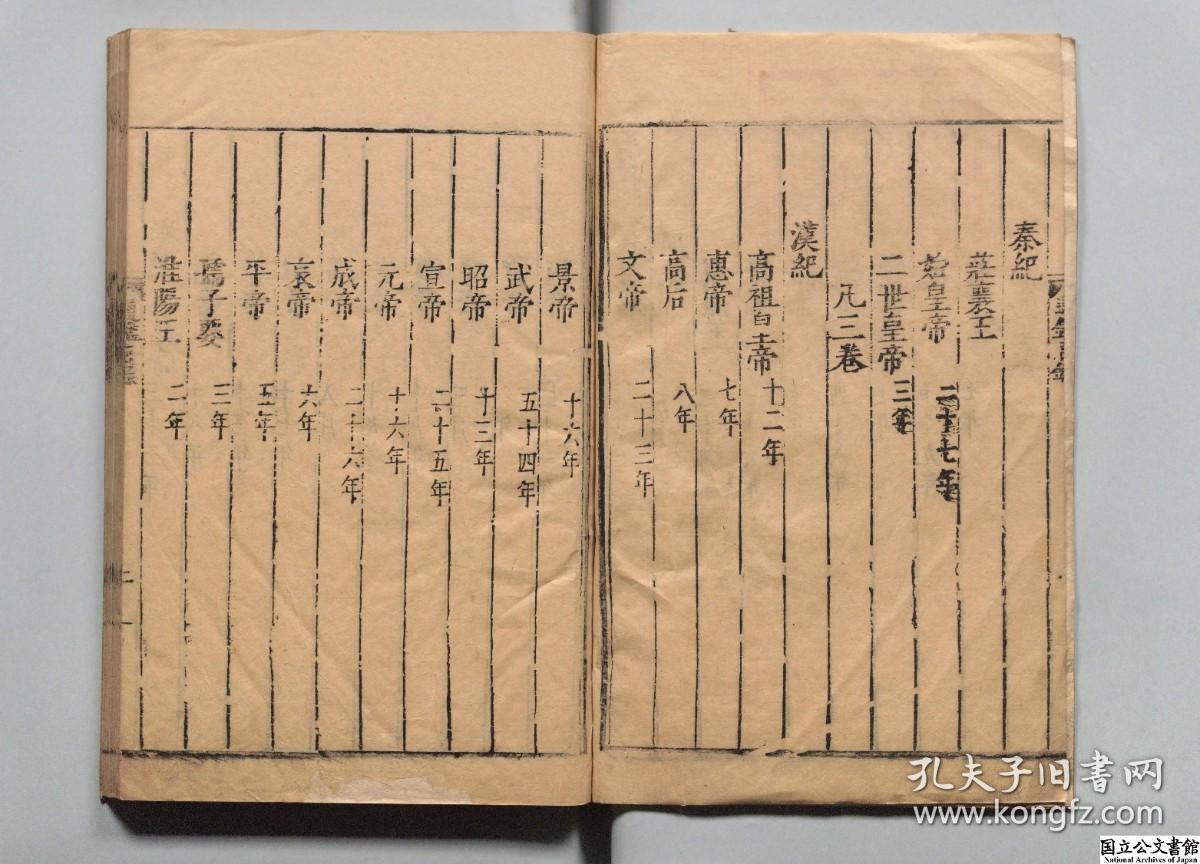 秦紀
莊襄王
始皇帝 二十七年
二世皇帝 三年
凡三卷
漢紀
高祖皇帝 十二年
惠帝 七年
高后 八年
文帝 二十三年
景帝 十六年
武帝 五十四年
昭帝 十三年
宣帝 二十五年
元帝 十六年
成帝 二十六年
哀帝 六年
平帝 五年
孺子嬰 三年
淮陽王 二年
二
孔夫子旧書网
www.kongfz.com
国立公文書館
National Archives of Japan